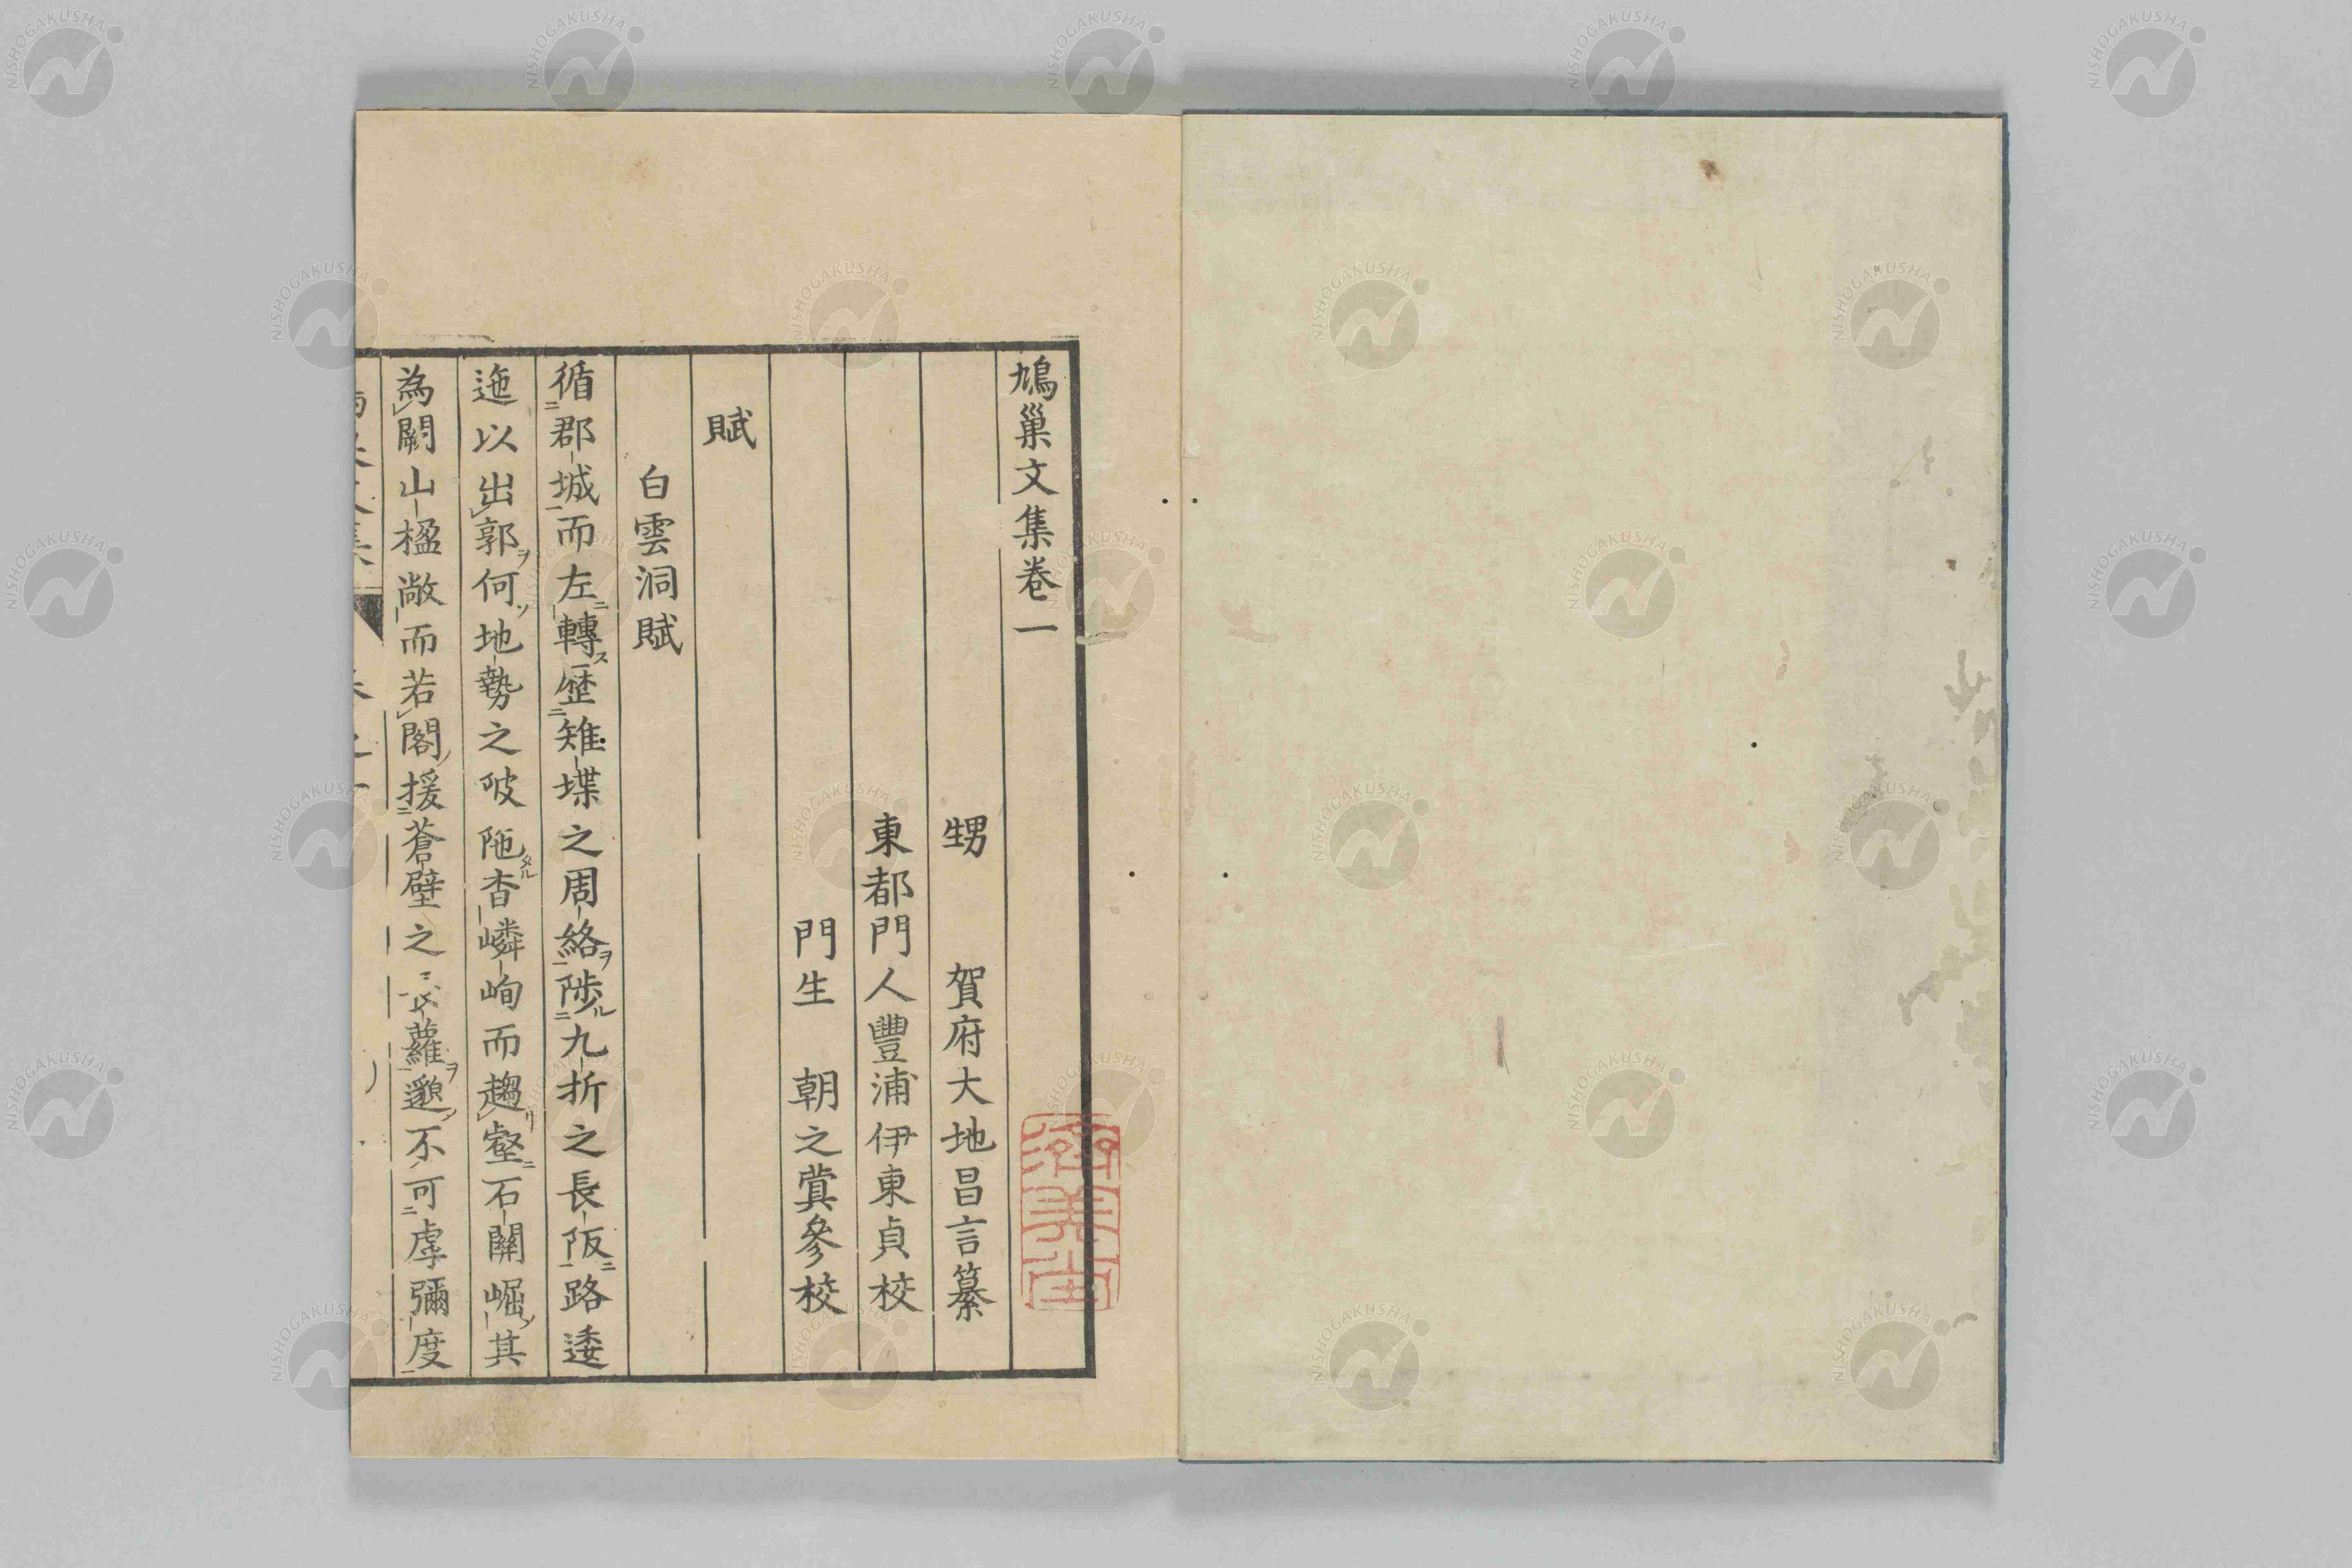 鳩巢文集卷一
甥 賀府大地昌言纂
東都門人豐浦伊東貞校
門生 朝之賞參校
賦
白雲洞賦
循郡城而左轉歷雉堞之周絡陟九折之長阪路逶
迤以出郭何地勢之陂陁杳嶙峋而趨壑石關崛其
為闕山楹敞而若閣援蒼壁之蘿邈不可虖彌度
NISHOGAKUSHA